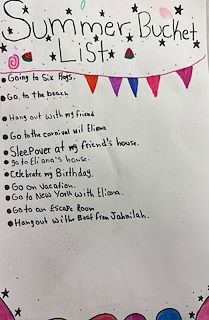 Summer Bucket
List
Going to Six flags.
Go to the beach
Hang out with my friend
Go to the carnival wil Eliana
Sleepover at my friend's house.
go to Eliana's house.
Celebrate my Birthday.
Go on vacation.
Go to New York with Eliana.
Go to an Escape Room
Hang out with Best From Jahnilah.